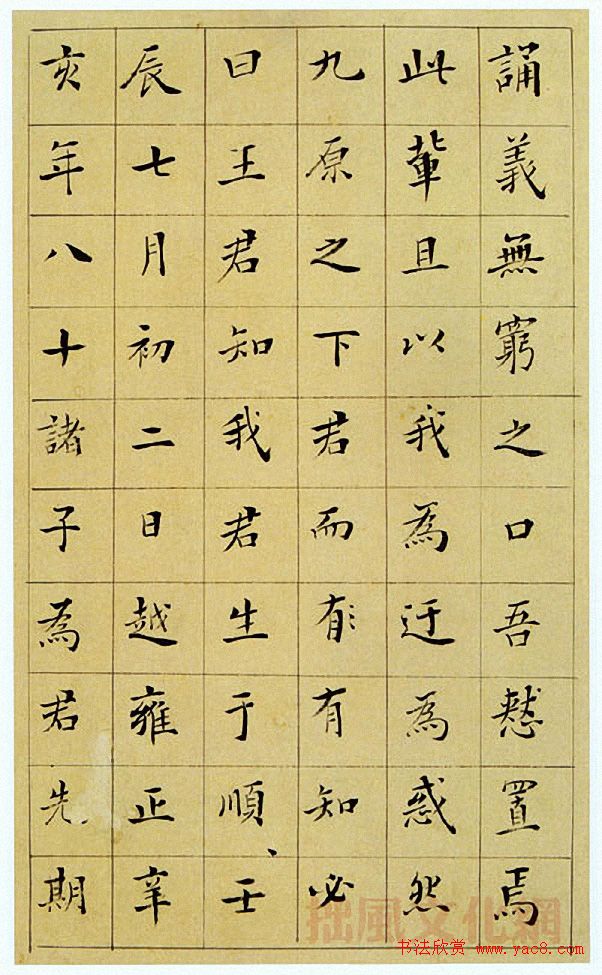 誦義無窮之口吾愁置焉
此輩且以我為迂為惑然
九原之下君而有有知必
曰王君知我君生于順壬
辰七月初二日越雍正辛
亥年八十諸子為君先期
拙風文化網
书法欣赏 www.yac8.com